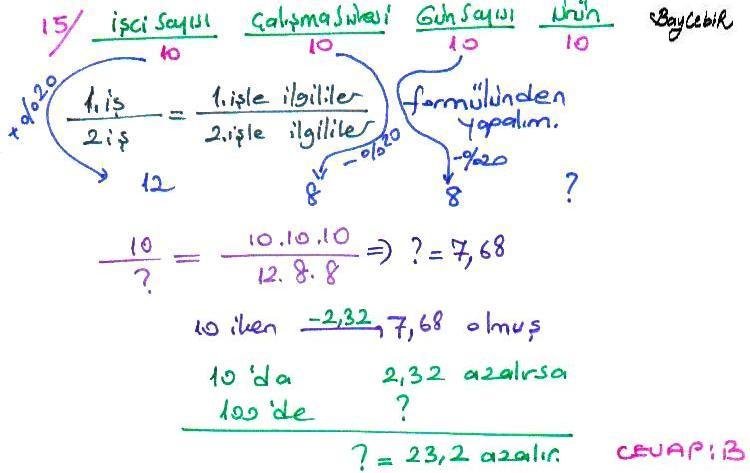 15/ İşçi Sayısı Çalışma Süresi Gün Sayısı Ürün BayCebiR
10 10 10 10
1. iş / 2 iş = 1. işle ilgililer / 2. işle ilgililer formülünden yapalım.
+%20 -%20 -%20
12 8 8 ?
10 / ? = 10.10.10 / 12.8.8 ⇒ ? = 7,68
10 iken -2,32 7,68 olmuş
10'da 2,32 azalırsa
100'de ?
? = 23,2 azalır. CEVAP: B